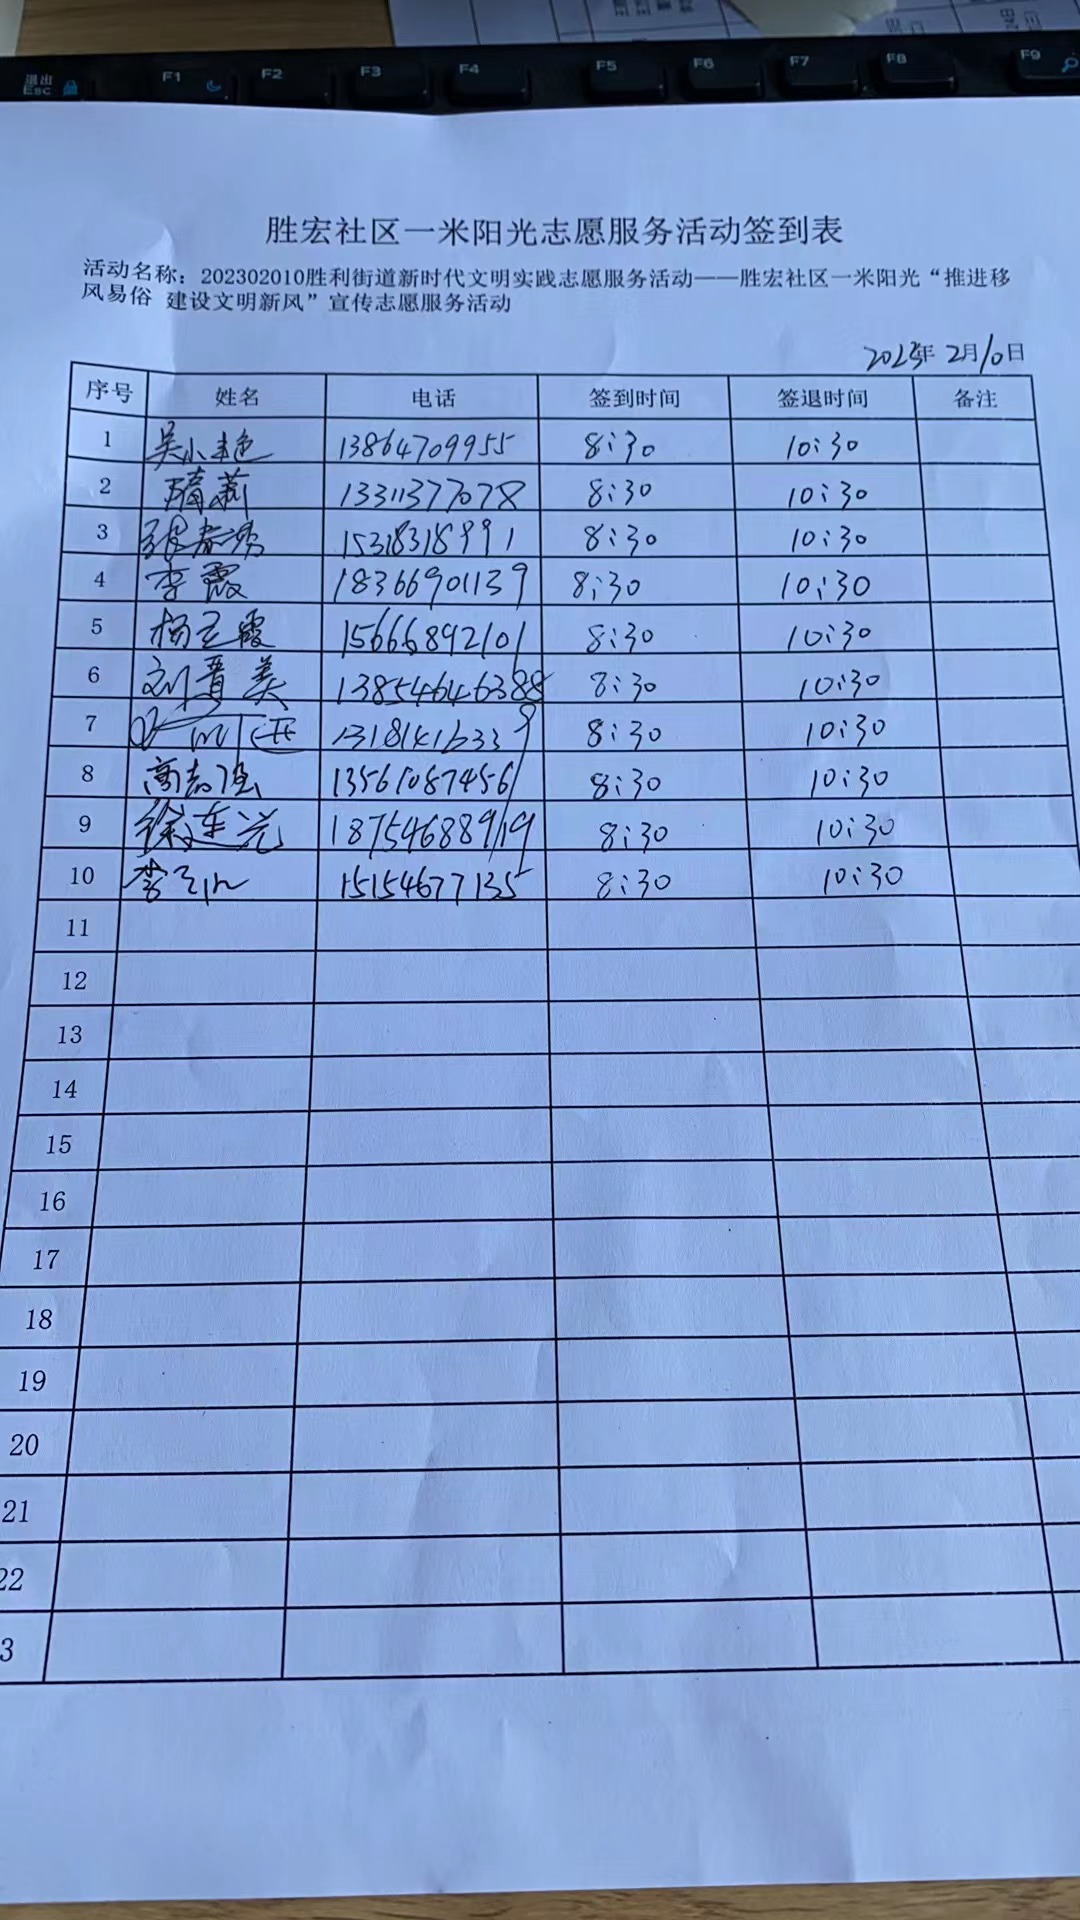 退出
Esc
F1
F2
F3
F4
F5
F6
F7
F8
F9
胜宏社区一米阳光志愿服务活动签到表
活动名称：202302010胜利街道新时代文明实践志愿服务活动——胜宏社区一米阳光“推进移
风易俗 建设文明新风”宣传志愿服务活动
年 2月10日
序号 姓名 电话 签到时间 签退时间 备注
1 吴小艳 13864709955 8:30 10:30
2 隋莉 13311377078 8:30 10:30
3 张春秀 15318318991 8:30 10:30
4 李霞 18366901139 8:30 10:30
5 杨玉霞 15666892101 8:30 10:30
6 刘晋美 13854646388 8:30 10:30
7 13181416339 8:30 10:30
8 高志强 13561087456 8:30 10:30
9 徐连光 18754688919 8:30 10:30
10 李 15154677135 8:30 10:30
11
12
13
14
15
16
17
18
19
20
21
22
3